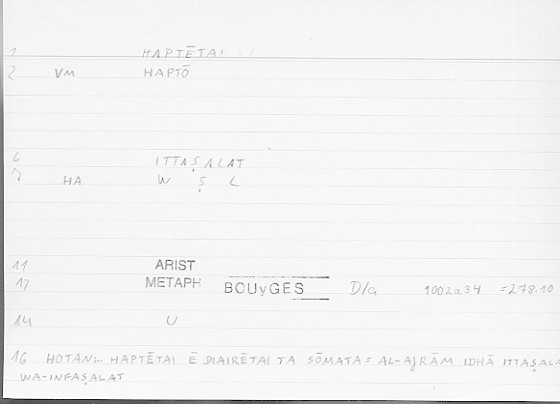 1 HAPTĒTAI
2 VM HAPTŌ
6 ITTAṢALAT
7 HA W Ṣ L
11 ARIST
12 METAPH BOUyGES D/a 1002a34 =278.10
14 U
16 HOTAN... HAPTĒTAI Ē DIAIRĒTAI TA SŌMATA = AL-AJRĀM IDHĀ ITTAṢALA
WA-INFAṢALAT